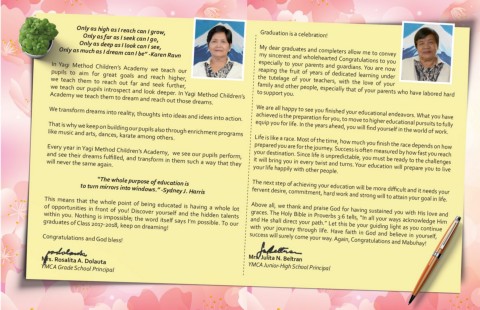 Only as high as I reach can I grow,
Only as far as I seek can I go,
Only as deep as I look can I see,
Only as much as I dream can I be" -Karen Raun
In Yagi Method Children's Academy we teach our
pupils to aim for great goals and reach higher,
we teach them to reach out far and seek further,
we teach our pupils introspect and look deeper. In Yagi Method Children's
Academy we teach them to dream and reach out those dreams.
We transform dreams into reality, thoughts into ideas and ideas into action.
That is why we keep on building our pupils also through enrichment programs
like music and arts, dances, karate among others.
Every year in Yagi Method Children's Academy, we see our pupils perform,
and see their dreams fulfilled, and transform in them such a way that they
will never the same again.
"The whole purpose of education is
to turn mirrors into windows." -Sydney J. Harris
This means that the whole point of being educated is having a whole lot
of opportunities in front of you! Discover yourself and the hidden talents
within you. Nothing is impossible; the word itself says I'm possible. To our
graduates of Class 2017-2018, keep on dreaming!
Congratulations and God bless!
Mrs. Rosalita A. Dolauta
YMCA Grade School Principal
Graduation is a celebration!
My dear graduates and completers allow me to convey
my sincerest and wholehearted Congratulations to you
especially to your parents and guardians. You are now
reaping the fruit of years of dedicated learning under
the tutelage of your teachers, with the love of your
family and other people, especially that of your parents who have labored hard
to support you.
We are all happy to see you finished your educational endeavors. What you have
achieved is the preparation for you, to move to higher educational pursuits to fully
equip you for life. In the years ahead, you will find yourself in the world of work.
Life is like a race. Most of the time, how much you finish the race depends on how
prepared you are for the journey. Success is often measured by how fast you reach
your destination. Since life is unpredictable, you must be ready to the challenges
it will bring you in every twist and turns. Your education will prepare you to live
your life happily with other people.
The next step of achieving your education will be more difficult and it needs your
fervent desire, commitment, hard work and strong will to attain your goal in life.
Above all, we thank and praise God for having sustained you with His love and
graces. The Holy Bible in Proverbs 3:6 tells, "In all your ways acknowledge Him
and He shall direct your path." Let this be your guiding light as you continue
with your journey through life. Have faith in God and believe in yourself,
success will surely come your way. Again, Congratulations and Mabuhay!
Mrs. Julita N. Beltran
YMCA Junior High School Principal